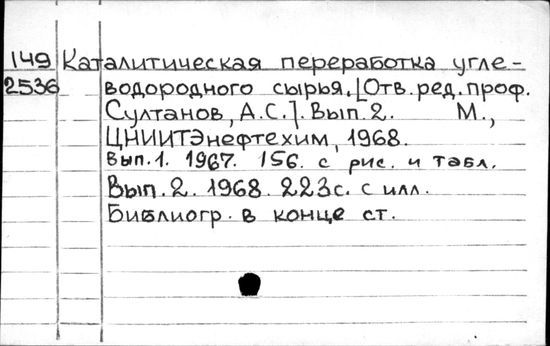 149 Каталитическая переработка угле-
2536 водородного сырья. [Отв. ред. проф.
Султанов, А.С.]. Вып. 2. М.,
ЦНИИТЭнефтехим, 1968.
Вып. 1. 1967. 156. с рис. и табл.
Вып. 2. 1968. 223с. с илл.
Библиогр. в конце ст.